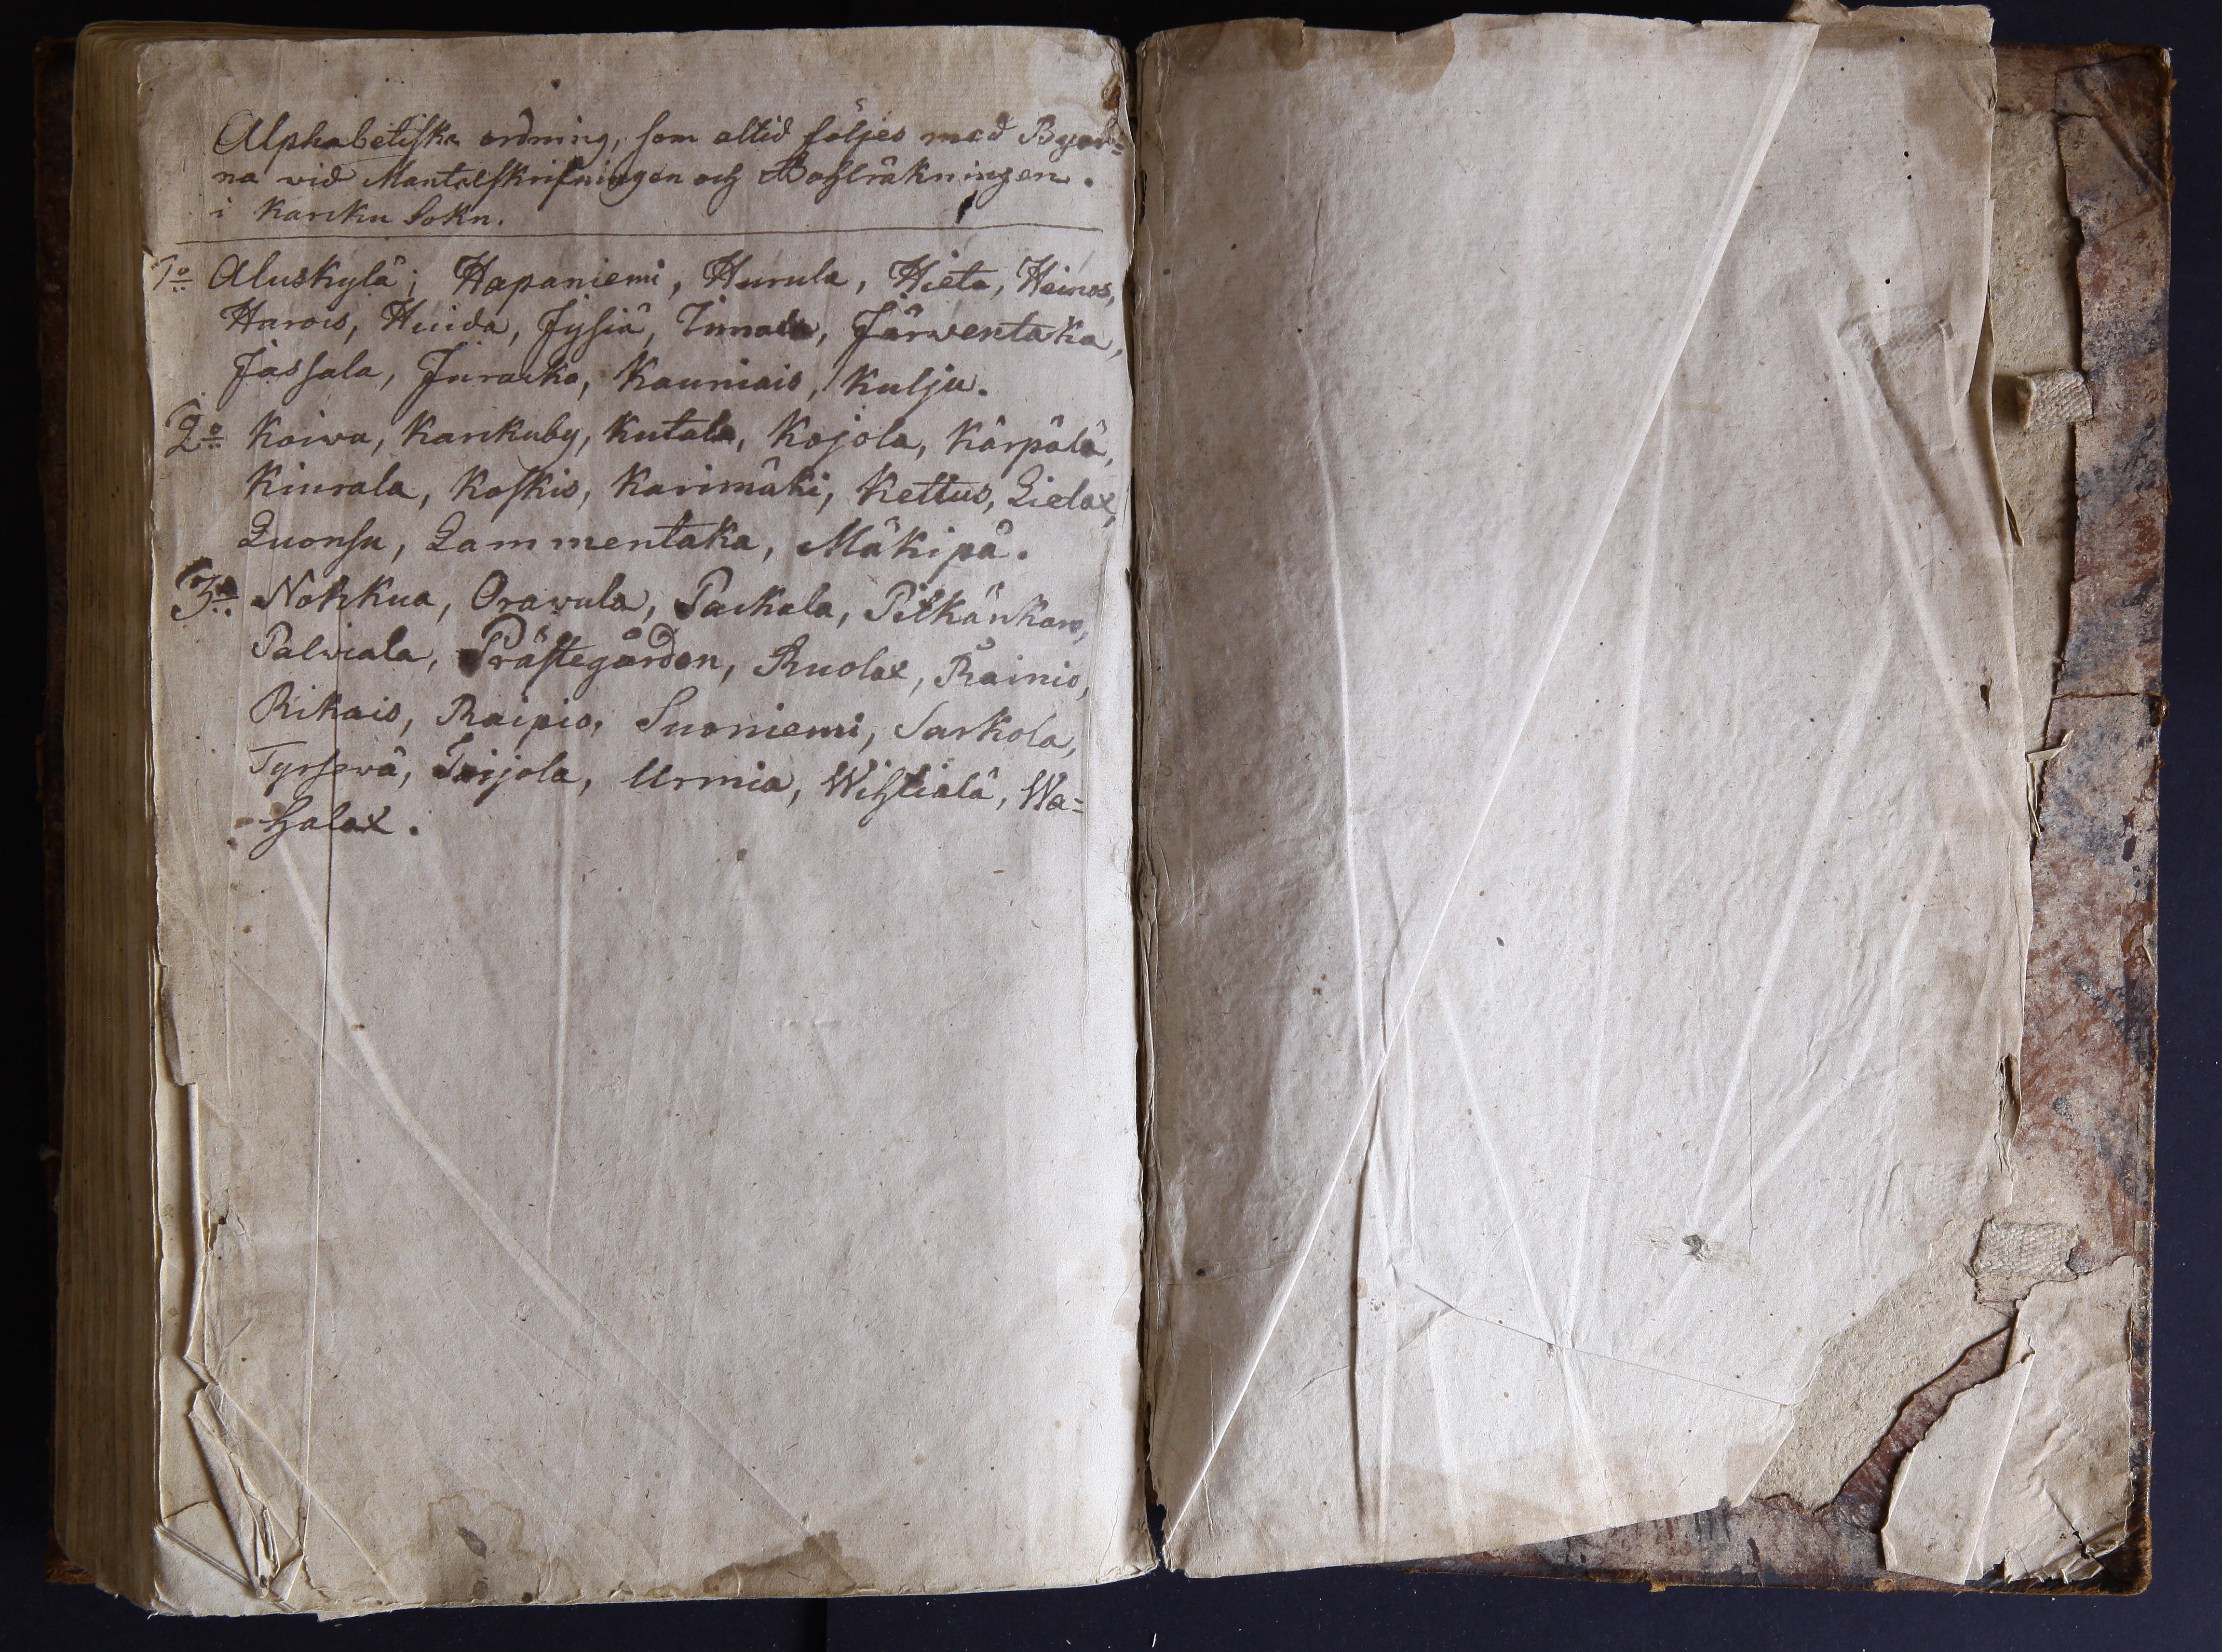 Alphabetiska ordning, som altid följes med Byar=
na wid Mantalskrifningen och Bohlräkningen.
i Karcku Sokn.
1o Aluskylä; Hapaniemi, Hurula, Hieta, Heinos,
Harois, Huida, Jysiä, Innala, Järwentaka,
Jassala, Juracko, Kauniais, Kulju.
2o Koiwa, Karckuby, Kutala, Kojola, Kärpälä,
Kiurala, Koskis, Karimäki, Kettus, Lielax,
Luonsu, Lammentaka, Mäkipä.
3o Nohkua, Orawula, Packala, Pitkänkaro,
Palwiala, Prästegården, Ruolax, Rainio,
Rikais, Raipio, Suoniemi, Sarkola,
Tyrsewä, Toijola, Urmia, Wihtialä, Wa=
halax.